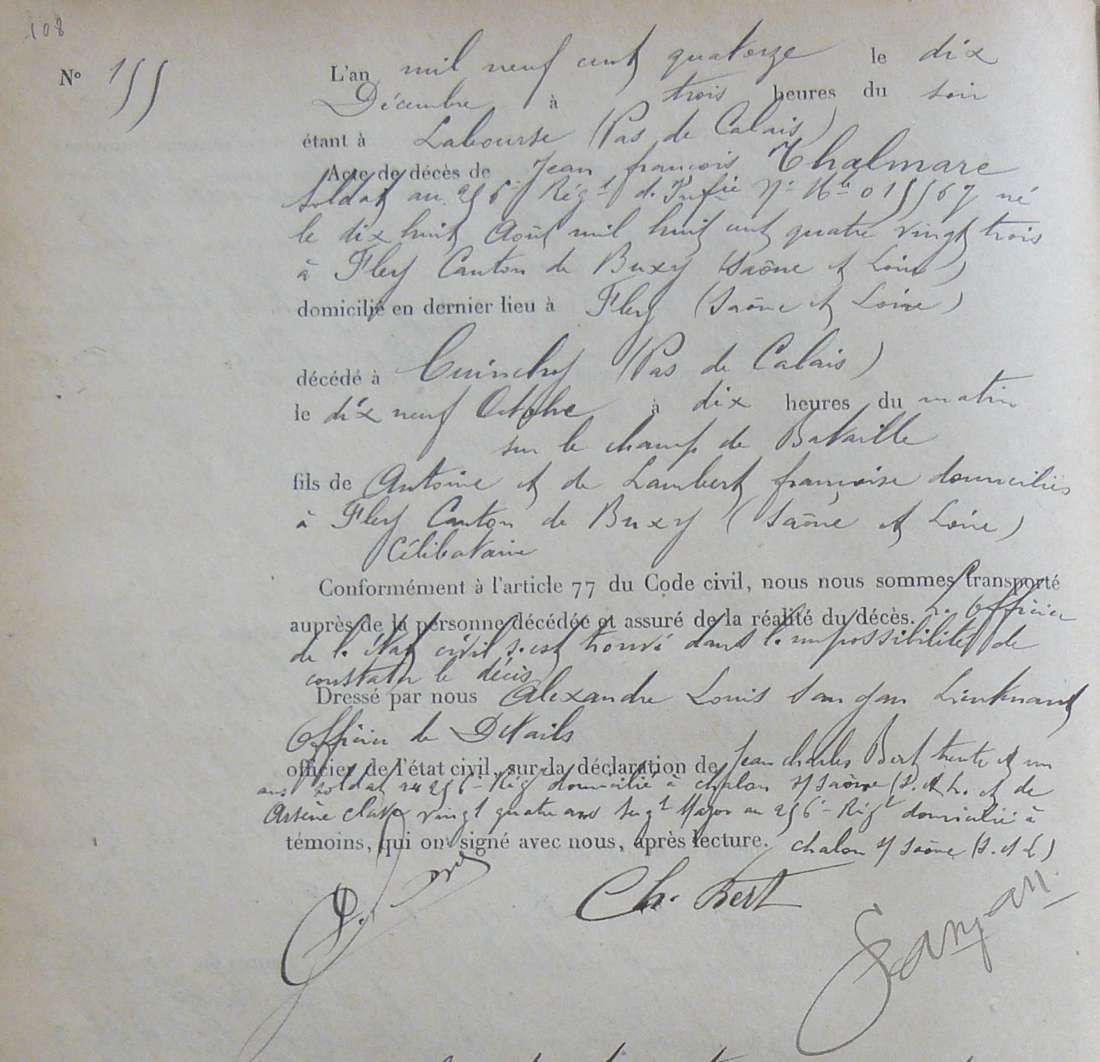 108
N° 155
L'an mil neuf cent quatorze le dix
Décembre à trois heures du soir
étant à Labourse (Pas de Calais)
Acte de décès de Jean françois Thalmare
soldat au 256e Régt d'Infie No Mle 015567 né
le dix huit Août mil huit cent quatre vingt trois
à Fley Canton de Buxy (Saône et Loire)
domicilié en dernier lieu à Fley (Saône et Loire)
décédé à Cuinchy (Pas de Calais)
le dix neuf Octobre à dix heures du matin
sur le champ de Bataille
fils de Antoine et de Lambert françoise domiciliés
à Fley Canton de Buxy (Saône et Loire)
Célibataire
Conformément à l'article 77 du Code civil, nous nous sommes transporté
auprès de la personne décédée et assuré de la réalité du décès. Officier
de l'état civil s'est trouvé dans l'impossibilité de
constater le décès
Dressé par nous Alexandre Louis Sanjan Lieutenant
Officier de Détails
officier de l'état civil, sur la déclaration de Jean charles Bert trente et un
ans soldat au 256e Régt domicilié à chalon s/ Saône (S. et L. et de
Arsène vingt quatre ans Sergt Major au 256e Régt domicilié à
témoins, qui ont signé avec nous, après lecture. chalon s/ Saône (S. et L)
Ch. Bert
Sanjan